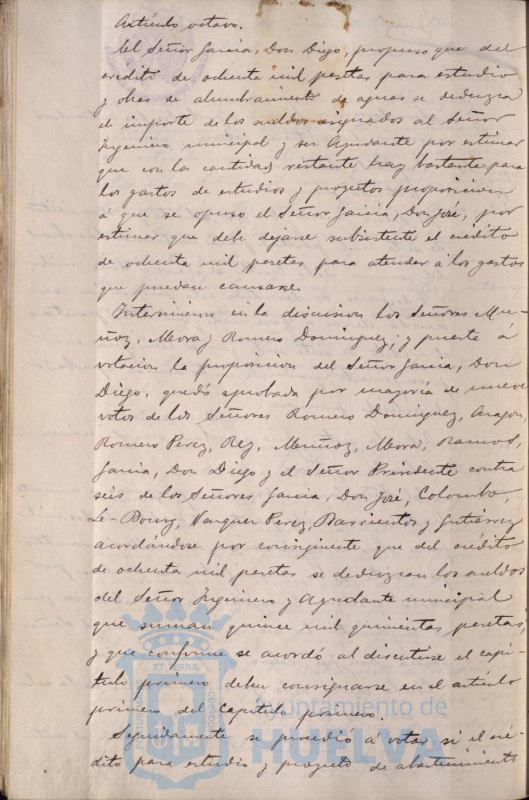 Artículo octavo.
El Señor Garcia, Don Diego, propuso que del
crédito de ochenta mil pesetas para estudio
y obras de alumbramiento de aguas se deduzca
el importe de los sueldos asignados al Señor
Ingeniero municipal y su Ayudante por estimar
que con la cantidad restante hay bastante para
los gastos de estudios y proyectos proposicion
á que se opuso el Señor Garcia, Don José, por
estimar que debe dejarse subsistente el crédito
de ochenta mil pesetas para atender á los gastos
que puedan causarse.
Intervinieron en la discusion los Señores Mu-
ñoz, Mora y Romero Dominguez; y puesta á
votacion la proposicion del Señor Garcia, Don
Diego, quedó aprobada por mayoría de nueve
votos de los Señores Romero Dominguez, Aragon,
Romero Perez, Rey, Muñoz, Mora, Ramos,
Garcia, Don Diego y el Señor Presidente contra
seis de los Señores Garcia, Don José, Colombo,
Le-Bourg, Vazquez Perez, Barrientos y Gutiérrez
acordándose por consiguiente que del crédito
de ochenta mil pesetas se deduzcan los sueldos
del Señor Ingeniero y Ayudante municipal
que suman quince mil quinientas pesetas,
y que conforme se acordó al discutirse el capi-
tulo primero deben consignarse en el artículo
primero del Capitulo primero.
Seguidamente se procedió á votar si el cré-
dito para estudio y proyecto de abastecimiento
ET TERRÆ
Ayuntamiento de
HUELVA